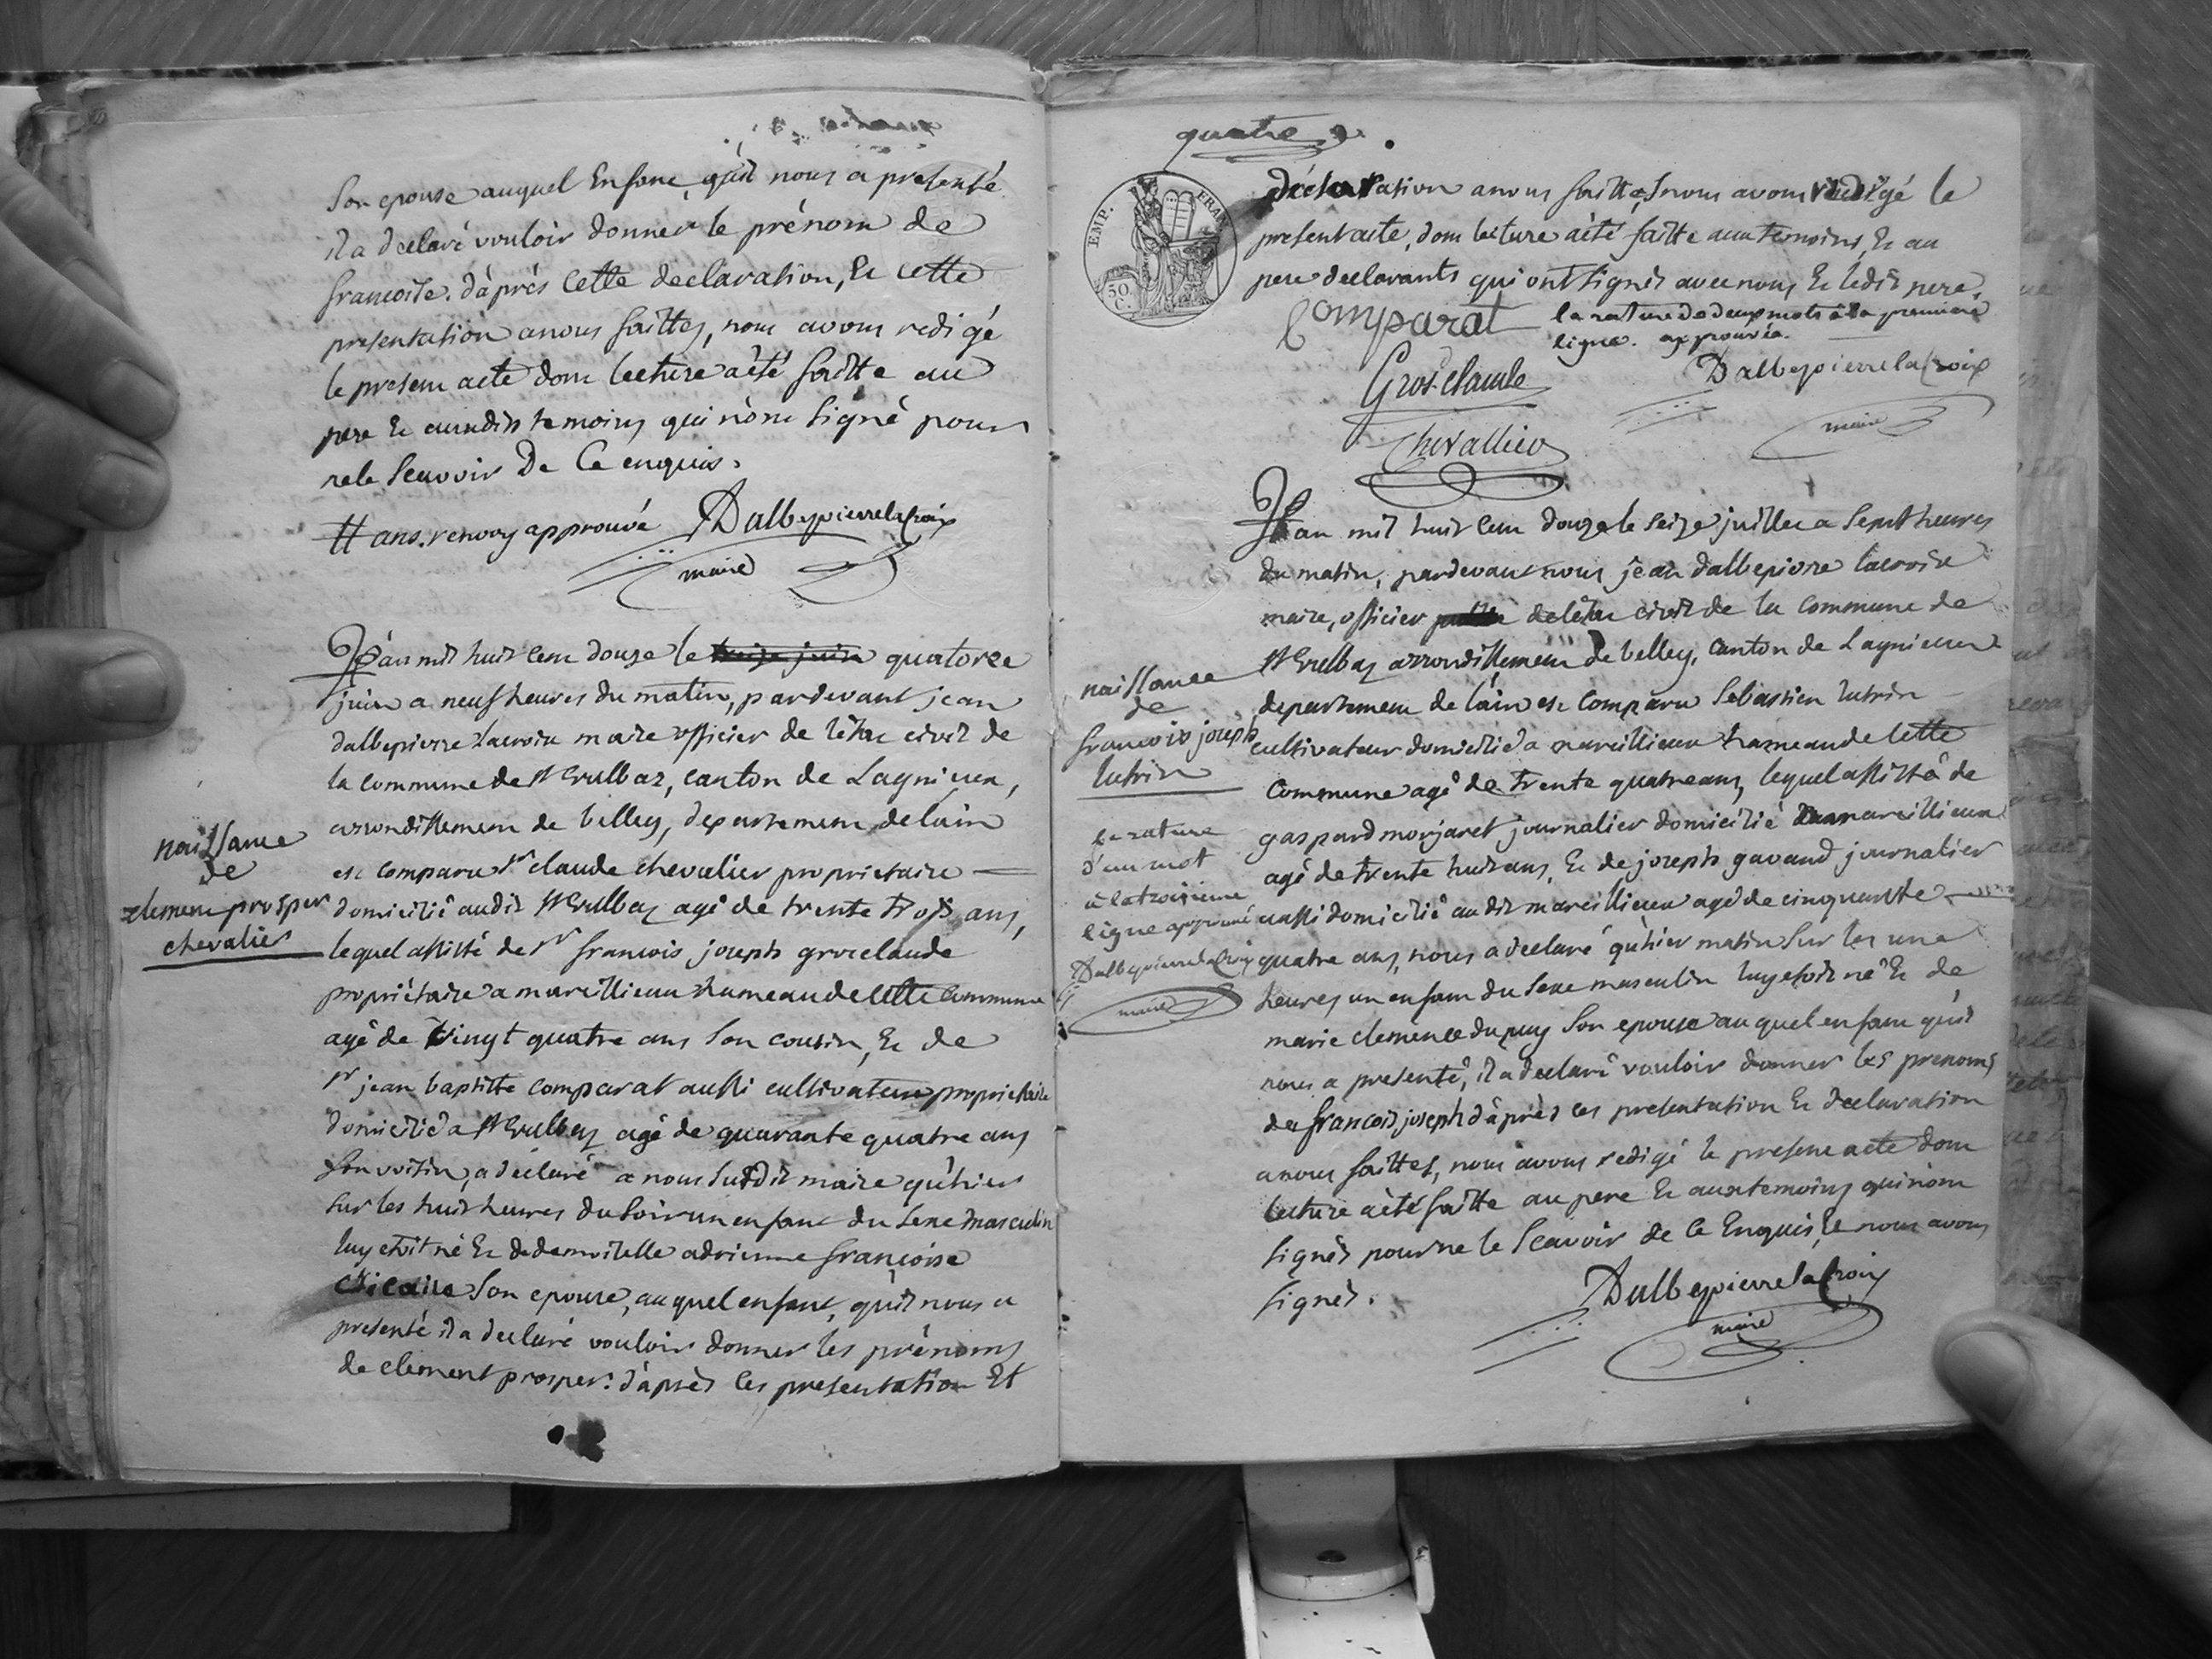 Son epouse auquel Enfant, qu'il nous a presenté
il a declaré vouloir donner le prénom de
francoise. d'après cette declaration, Et cette
presentation a nous faittes, nous avons redigé
le present acte dont lecture a été faitte au
pere Et auxdits temoins qui n'ont signé pour
ne le scavoir De Ce enquis.
# ans. renvoy approuvé Dalbepierrelacroix
maire
L'an mil huit cent douze le treize juin quatorze
juin a neuf heures du matin, pardevant jean
dalbepierre lacroix maire officier de l'état civil de
la commune de St Vulbaz, canton de Lagnieux,
arrondissement de belley, departement de lain
naissance
de
clement prosper
chevalier
est comparu sr claude chevalier proprietaire
domicilié audit St Vulbaz agé de trente trois ans,
lequel assisté de sr francois joseph groclaude
propriétaire a marcillieux hameau de cette Commune
agé de vingt quatre ans son cousin, Et de
sr jean baptiste comparat aussi cultivateur proprietaire
domicilié a St Vulbaz agé de quarante quatre ans
son voisin, a déclaré a nous susdit maire qu'hier
sur les huit heures du soir un enfant du sexe masculin
luy etoit né Et de demoiselle adrienne francoise
son epouse, auquel enfant, qu'il nous a
presenté il a declaré vouloir donner les prénoms
de clement prosper. d'après ces presentation Et
quatre
EMP. FRAN
50 C.
déclaration a nous faittes nous avons redigé le
present acte, dont lecture a été faitte aux temoins, Et au
pere declarants qui ont signés avec nous Et ledit pere.
Comparat
la rature de deux mots à la premiere
ligne. approuvée.
Gros-Claude
Dalbepierrelacroix
maire
Chevallier
L'an mil huit cent douze le seize juillet a sept heures
du matin, pardevant nous jean dalbepierre lacroix
maire, officier de l'état civil de la commune de
St Vulbaz arrondissement de belley, canton de Lagnieux
naissance
de
francois joseph
lutrin
departement de l'ain est comparu Sebastien lutrin
cultivateur domicilié a marcillieux hameau de cette
Commune agé de trente quatre ans, lequel assisté de
gaspard morjaret journalier domicilié a marcillieux
agé de trente huit ans, Et de joseph gavand journalier
la rature
d'un mot
à la troisieme
ligne approuvé
Dalbepierrelacroix
maire
aussi domicilié au dit marcillieux agé de cinquante
quatre ans, nous a declaré qu'hier matin sur les une
heures un enfant du sexe masculin luy etoit né Et de
marie clemence dupuy son epouse auquel enfant qu'il
nous a presenté, il a declaré vouloir donner les prenoms
de francois joseph d'après ces presentation Et declaration
a nous faittes, nous avons redigé le present acte dont
lecture a été faitte au pere Et aux temoins qui n'ont
signés pour ne le Scavoir de ce Enquis, Et nous avons
signés.
Dalbepierrelacroix
maire